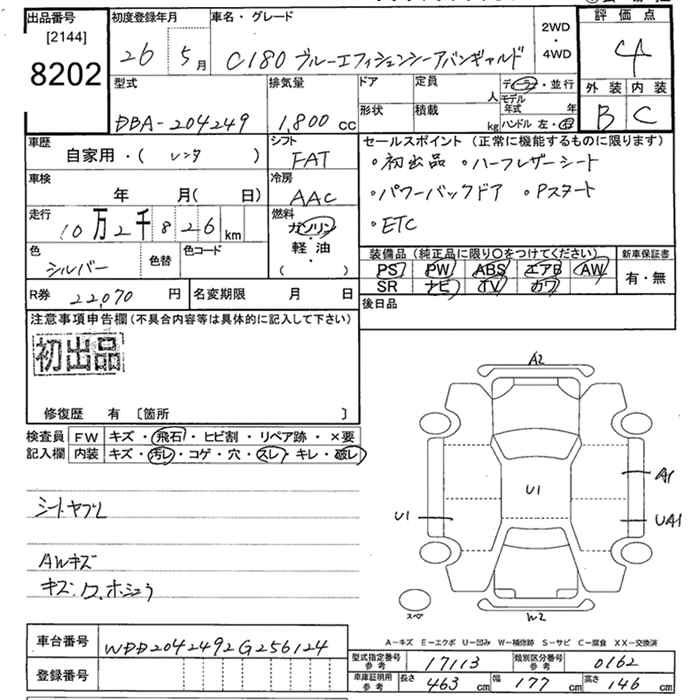 出品番号
[2144]
8202
初度登録年月
26 5月
車名・グレード
C180 ブルーエフィシェンシーアバンギャルド
2WD
・
4WD
評価点
4
外装 内装
B C
型式
DBA-204249
排気量
1,800 cc
ドア
形状
定員
人
積載
kg
デ・ラ・並行
モデル
年式 年
ハンドル 左・右
車歴
自家用・( レンタ )
シフト
FAT
車検
年 月( 日)
冷房
AAC
走行
10万2千826km
燃料
ガソリン
軽・油
( )
色
シルバー
色替
色コード
R券 22,070 円
名変期限 月 日
セールスポイント (正常に機能するものに限ります)
・初出品 ・ハーフレザーシート
・パワーバックドア ・Pスタート
・ETC
装備品 (純正品に限り〇をつけてください)
PS PW ABS エアB AW
SR ナビ TV カワ
新車保証書
有・無
後日品
注意事項申告欄 (不具合内容等は具体的に記入して下さい)
初出品
修復歴 有 〔箇所 〕
検査員
記入欄
FW キズ・飛石・ヒビ割・リペア跡・×要
内装 キズ・汚レ・コゲ・穴・スレ・キレ・破レ
シートヤブレ
AWキズ
キズ.ワ.ホシュウ
A2
A1
U1
U1
UA1
スペ
W2
A-キズ E-エクボ U-凹み W-補修跡 S-サビ C-腐食 XX-交換済
車台番号 WDD2042492G256124
登録番号
型式指定番号
参考
17113
類別区分番号
参考
0162
車庫証明用
参考
長さ 463 cm
幅 177 cm
高さ 146 cm